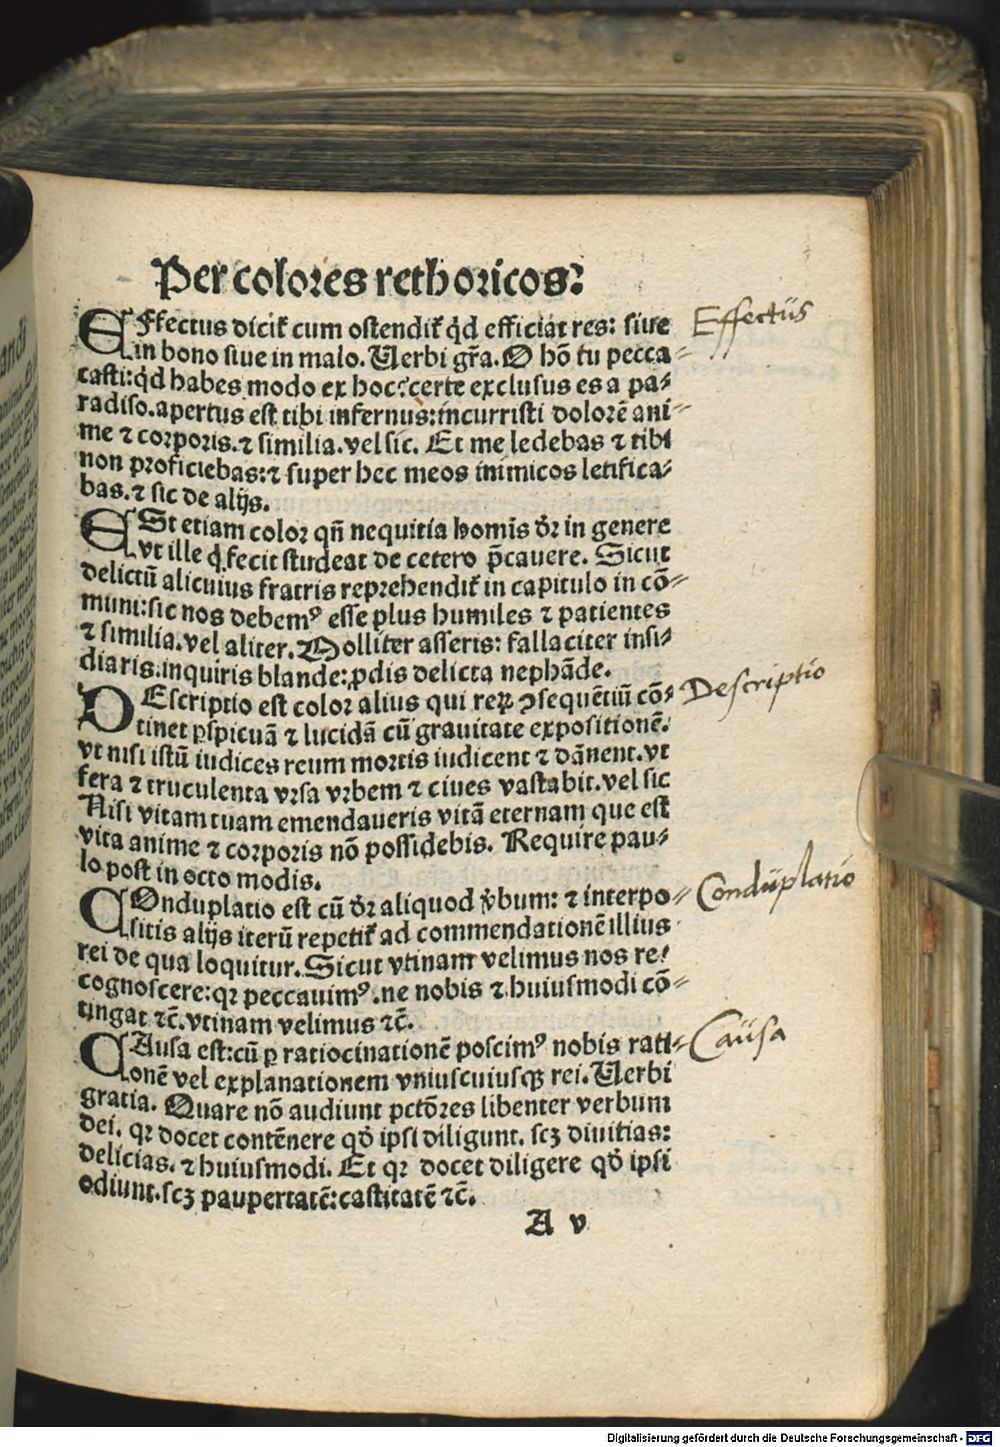 Per colores rethoricos:
EFfectus dicit̃ cum ostendit̃ qd̓ efficiat res: siue Effectus
in bono siue in malo. Verbi gr̃a. O hō tu pecca⸗
casti: qd̓ habes modo ex hoc: certe exclusus es a pa⸗
radiso. apertus est tibi infernus: incurristi dolorē ani⸗
me ⁊ corporis. ⁊ similia. vel sic. Et me ledebas ⁊ tibi
non proficiebas: ⁊ super hec meos inimicos letifica⸗
bas. ⁊ sic de alijs.
ESt etiam color qn̄ nequitia homīs d̓r in genere
vt ille q̓ fecit studeat de cetero p̄cauere. Sicut
delictū alicuius fratris reprehendit̃ in capitulo in cō⸗
muni: sic nos debemꝰ esse plus humiles ⁊ patientes
⁊ similia. vel aliter. Molliter asseris: fallaciter insi⸗
diaris. inquiris blande: ꝓdis delicta nephāde.
DEscriptio est color alius qui reꝝ ꝯsequētiū cō⸗ Descriptio
tinet ꝑspicuā ⁊ lucidā cū grauitate expositionē.
vt nisi istū iudices reum mortis iudicent ⁊ dānent. vt
fera ⁊ truculenta vrsa vrbem ⁊ ciues vastabit. vel sic
Nisi vitam tuam emendaueris vitā eternam que est
vita anime ⁊ corporis nō possidebis. Require pau⸗
lo post in octo modis.
COnduplatio est cū d̓r aliquod v̓bum: ⁊ interpo⸗ Conduplatio
sitis alijs iterū repetit̃ ad commendationē illius
rei de qua loquitur. Sicut vtinam velimus nos re⸗
cognoscere: qꝛ peccauimꝰ. ne nobis ⁊ huiusmodi cō⸗
tingat ⁊c̄. vtinam velimus ⁊c̄.
CAusa est: cū ꝑ ratiocinationē poscimꝰ nobis rati⸗ Causa
onē vel explanationem vniuscuiusqꝫ rei. Verbi
gratia. Quare nō audiunt pctōres libenter verbum
dei. qꝛ docet contēnere qd̓ ipsi diligunt. scꝫ diuitias:
delicias. ⁊ huiusmodi. Et qꝛ docet diligere qd̓ ipsi
odiunt. scꝫ paupertatē: castitatē ⁊c̄.
A v
Digitalisierung gefördert durch die Deutsche Forschungsgemeinschaft - DFG